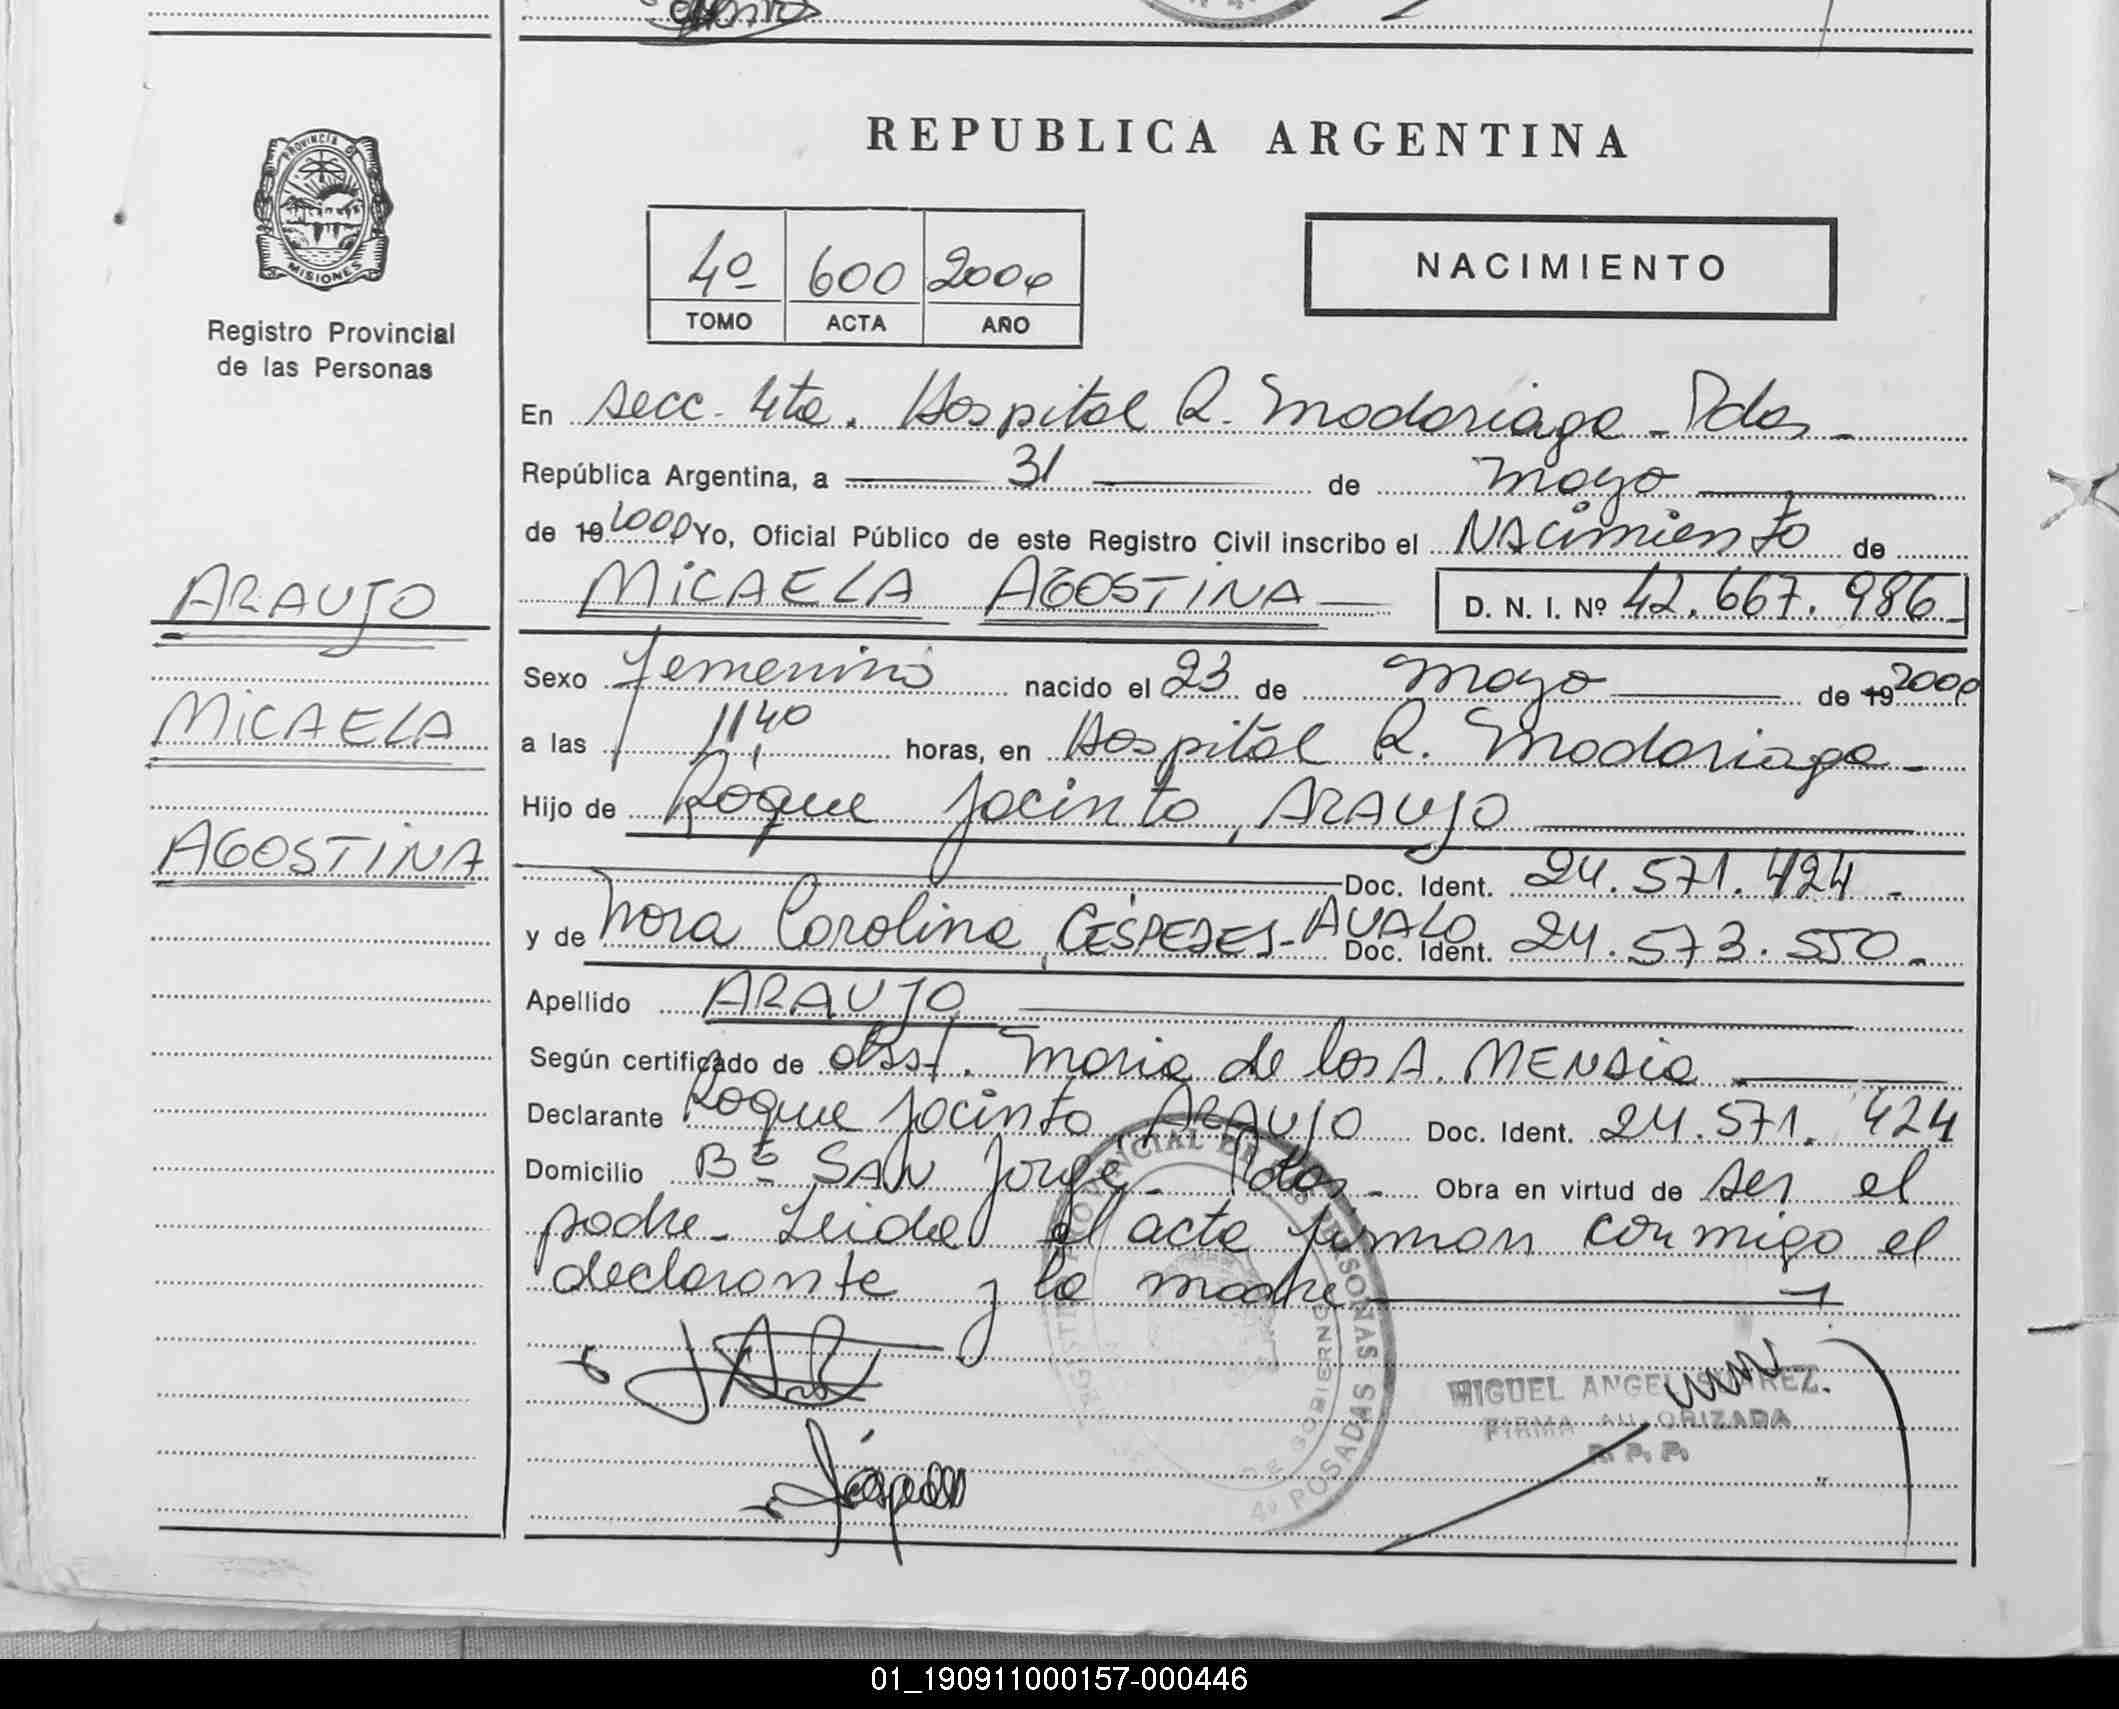 REPUBLICA ARGENTINA
PROVINCIA DE
MISIONES
Registro Provincial
de las Personas
4º 600 2000
TOMO ACTA AÑO
NACIMIENTO
En secc. 4ta. Hospital R. Madariaga - Pdas -
República Argentina, a 31 de mayo
de 19 2000 Yo, Oficial Público de este Registro Civil inscribo el NAcimiento de
MiCAELA AGOSTiNA D. N. I. Nº 42.667.986
ARAUJO
MiCAELA
AGOSTiNA
Sexo femenino nacido el 23 de mayo de 19 2000
a las 11,40 horas, en Hospital R. Madariaga -
Hijo de Roque Jacinto, ARAUJO
Doc. Ident. 24.571.424 -
y de Nora Carolina, CÉSPEDES - AVALO Doc. Ident. 24.573.550 -
Apellido ARAUJO
Según certificado de obst. Maria de los A. MENDia
Declarante Roque Jacinto, ARAUJO Doc. Ident. 24.571.424
Domicilio Bº SAN Jorge - Pdas - Obra en virtud de ser el
padre - Leida el acta firman conmigo el
declarante y la madre
MIGUEL ANGEL SUAREZ
FIRMA AUTORIZADA
R. P. P.
4º POSADAS
01_190911000157-000446